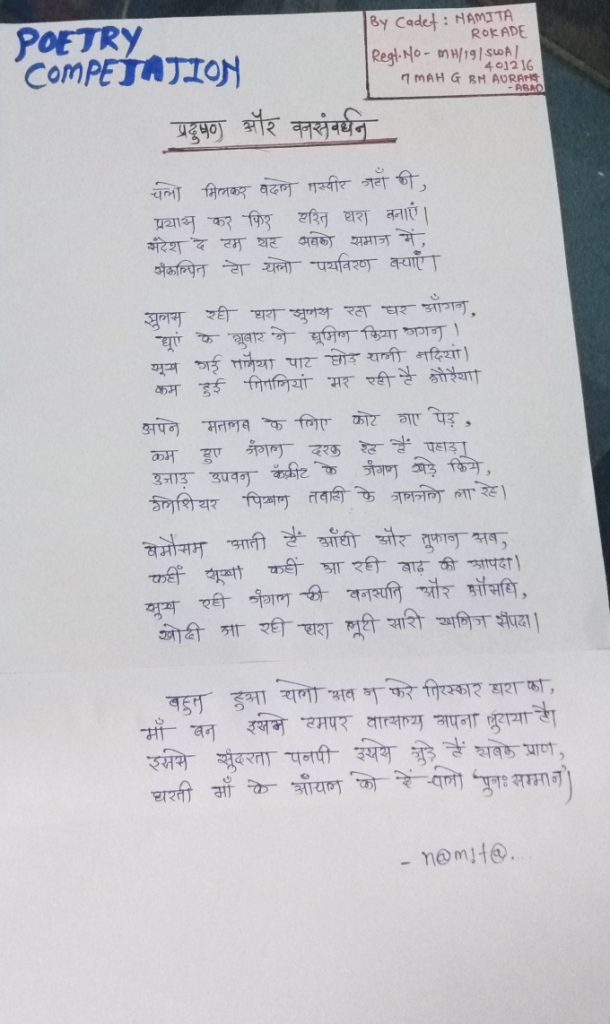 POETRY
COMPETATION
By Cadet: NAMITA
ROKADE
Regt.No- MH/19/SWA/
401216
7 MAH G BN AURANG
-ABAD
प्रदुषण और वनसंवर्धन
चलो मिलकर बदले तस्वीर जहाँ की,
प्रयास कर फिर हरित धरा बनाएं।
संदेश दे हम यह सबको समाज में,
संकल्पित हो चलो पर्यावरण बचाएँ।
झुलस रही धरा झुलस रहा घर आँगन,
धूएं के गुबार ने धूमिल किया गगन।
सूख गई तलैया पाट छोड चली नदियां।
कम हुई तितलियां मर रही है गौरैया।
अपने मतलब के लिए काटे गए पेड़,
कम हुए जंगल दरक रहे हैं पहाड़।
उजाड़ उपवन कंक्रीट के जंगल खड़े किये,
ग्लेशियर पिघल तबाही के जलजले ला रहे।
बेमौसम आती हैं आँधी और तुफान अब,
कहीं सूखा कहीं आ रही बाढ़ की आपदा।
सूख रही जंगल की वनस्पति और औषधि,
खोदी जा रही धरा लूटी सारी खनिज संपदा।
बहुत हुआ चलो अब न करे तिरस्कार धरा का,
माँ बन इसने हमपर वात्सल्य अपना लुटाया है।
इसमें सुंदरता पनपी इससे जुड़े हैं सबके प्राण,
धरती माँ के आँचल को दें चलो 'पुनः सम्मान'।
- n@m!t@....